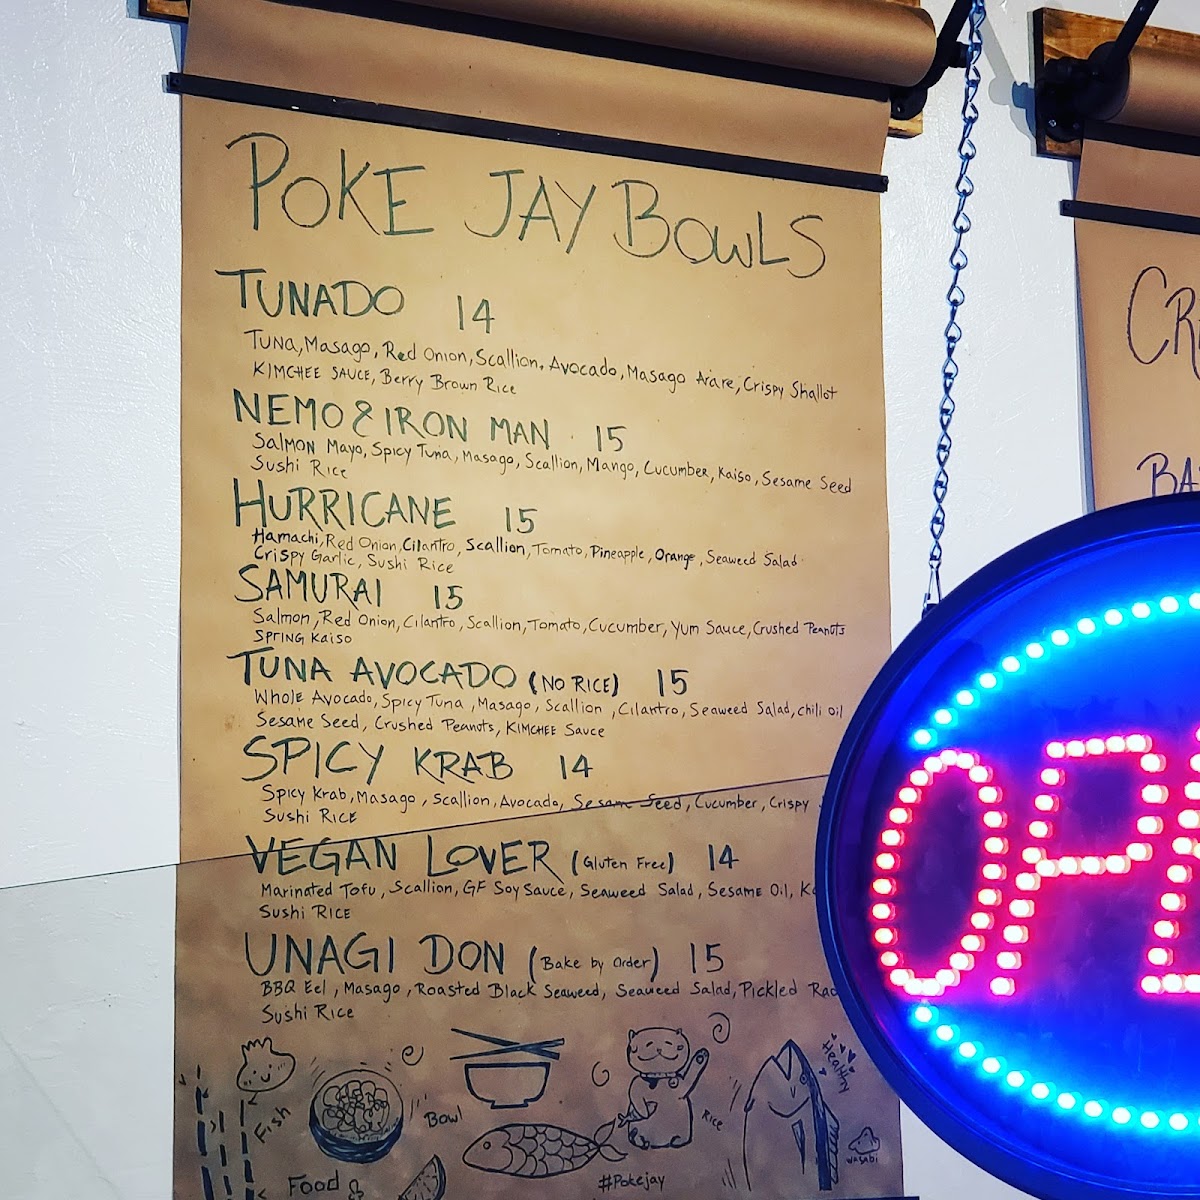 POKE JAY BOWLS
TUNADO 14
Tuna, Masago, Red Onion, Scallion, Avocado, Masago Arare, Crispy Shallot
KIMCHEE SAUCE, Berry Brown Rice
NEMO & IRON MAN 15
Salmon Mayo, Spicy Tuna, Masago, Scallion, Mango, Cucumber, Kaiso, Sesame Seed
Sushi Rice
HURRICANE 15
Hamachi, Red Onion, Cilantro, Scallion, Tomato, Pineapple, Orange, Seaweed Salad
Crispy Garlic, Sushi Rice
SAMURAI 15
Salmon, Red Onion, Cilantro, Scallion, Tomato, Cucumber, Yum Sauce, Crushed Peanuts
SPRING Kaiso
TUNA AVOCADO (NO RICE) 15
Whole Avocado, Spicy Tuna, Masago, Scallion, Cilantro, Seaweed Salad, chili oil
Sesame Seed, Crushed Peanuts, KIMCHEE Sauce
SPICY KRAB 14
Spicy Krab, Masago, Scallion, Avocado, Sesame Seed, Cucumber, Crispy
Sushi Rice
VEGAN LOVER (Gluten Free) 14
Marinated Tofu, Scallion, GF Soy Sauce, Seaweed Salad, Sesame Oil,
Sushi RICE
UNAGI DON (Bake by Order) 15
BBQ Eel, Masago, Roasted Black Seaweed, Seaweed Salad, Pickled
Sushi Rice
Fish
Bowl
Rice
Healthy
wasabi
Food
#Pokejay